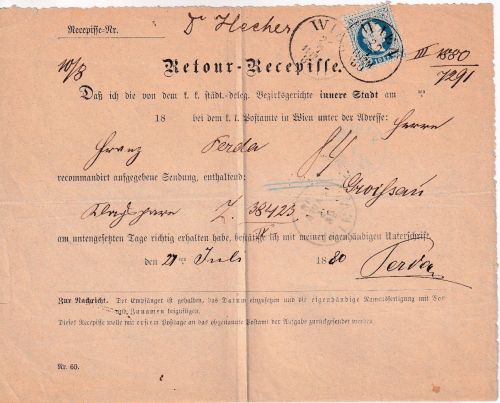 Recepisse-Nr.
Dr Hecher
WIEN
III 1880
7291
10/8
Retour-Recepisse.
Daß ich die von dem k. k. städt.-deleg. Bezirksgerichte innere Stadt am
18 bei dem k. k. Postamte in Wien unter der Adresse: Herrn
Franz Ferda
recommandirt aufgegebene Sendung, enthaltend: Groißau
Z. 38423
am untengesetzten Tage richtig erhalten habe, bestätige ich mit meiner eigenhändigen Unterschrift.
den 21 ten Juli 1880 Ferda
Zur Nachricht. Der Empfänger ist gehalten, das Datum einzusetzen und die eigenhändige Namensfertigung mit Vor-
und Zunamen beizufügen.
Dieses Recepisse wolle mit erstem Posttage an das obgenannte Postamt der Aufgabe zurückgesendet werden.
Nr. 60.